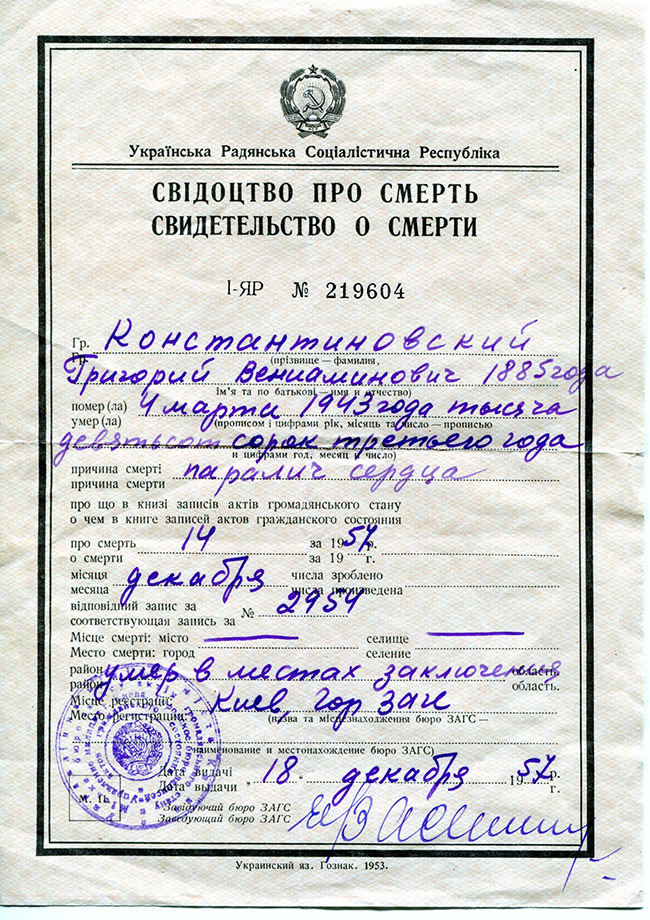 Українська Радянська Соціалістична Республіка
СВІДОЦТВО ПРО СМЕРТЬ
СВИДЕТЕЛЬСТВО О СМЕРТИ
І-ЯР № 219604
Гр. Константиновский
Гр. (прізвище — фамилия,
Григорий Вениаминович 1885 года
ім'я та по батькові — имя и отчество)
помер (ла) 4 марта 1943 года тысяча
умер (ла) (прописом і цифрами рік, місяць та число — прописью
девятьсот сорок третьего года
и цифрами год, месяц и число)
причина смерті паралич сердца
причина смерти
про що в книзі записів актів громадянського стану
о чем в книге записей актов гражданского состояния
про смерть 14 за 1957 р.
о смерти за 19 г.
місяця декабря числа зроблено
месяца числа произведена
відповідний запис за № 2954
соответствующая запись за
Місце смерті: місто — селище —
Место смерти: город селение
район умер в местах заключения область.
район область.
Місце реєстрації: Киев, Гор Загс
Место регистрации: (назва та місцезнаходження бюро ЗАГС —
наименование и местонахождение бюро ЗАГС)
Дата видачі „18" декабря 1957 р.
Дата выдачи г.
М. П.
Завідуючий бюро ЗАГС
Заведующий бюро ЗАГС
Украинский яз. Гознак. 1953.